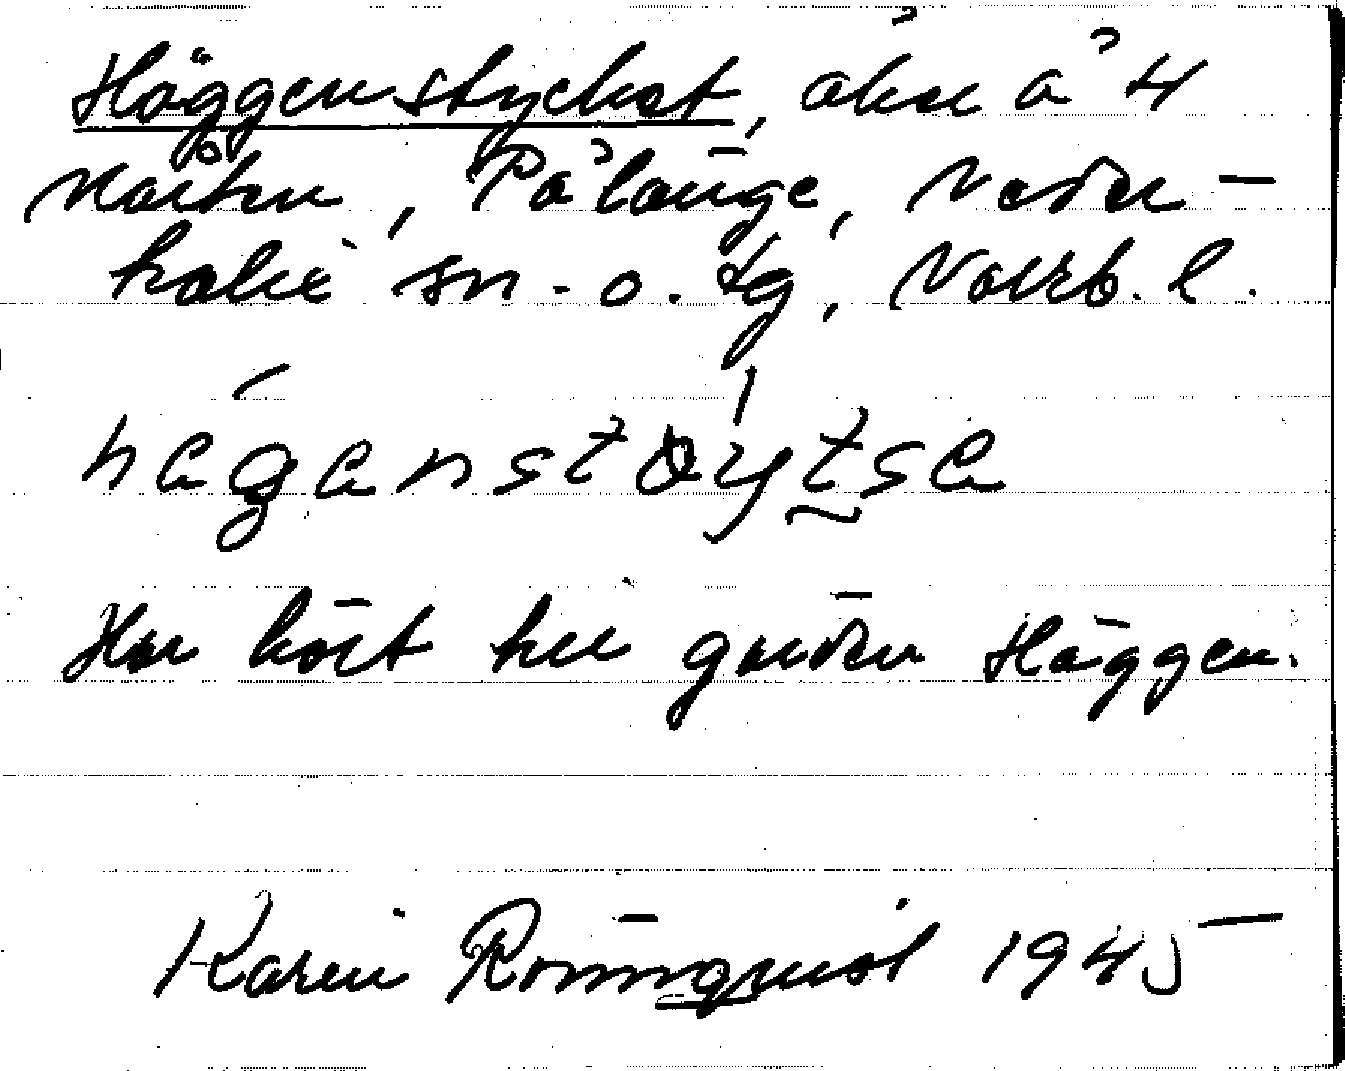 Häggenstycket, åker å 4
Mårten, Pålänge, Neder-
kalix sn. o. tg, Norrb. l.
hägänstöytsä
Har hört till gården Häggen.
Karin Rönnqvist 1945